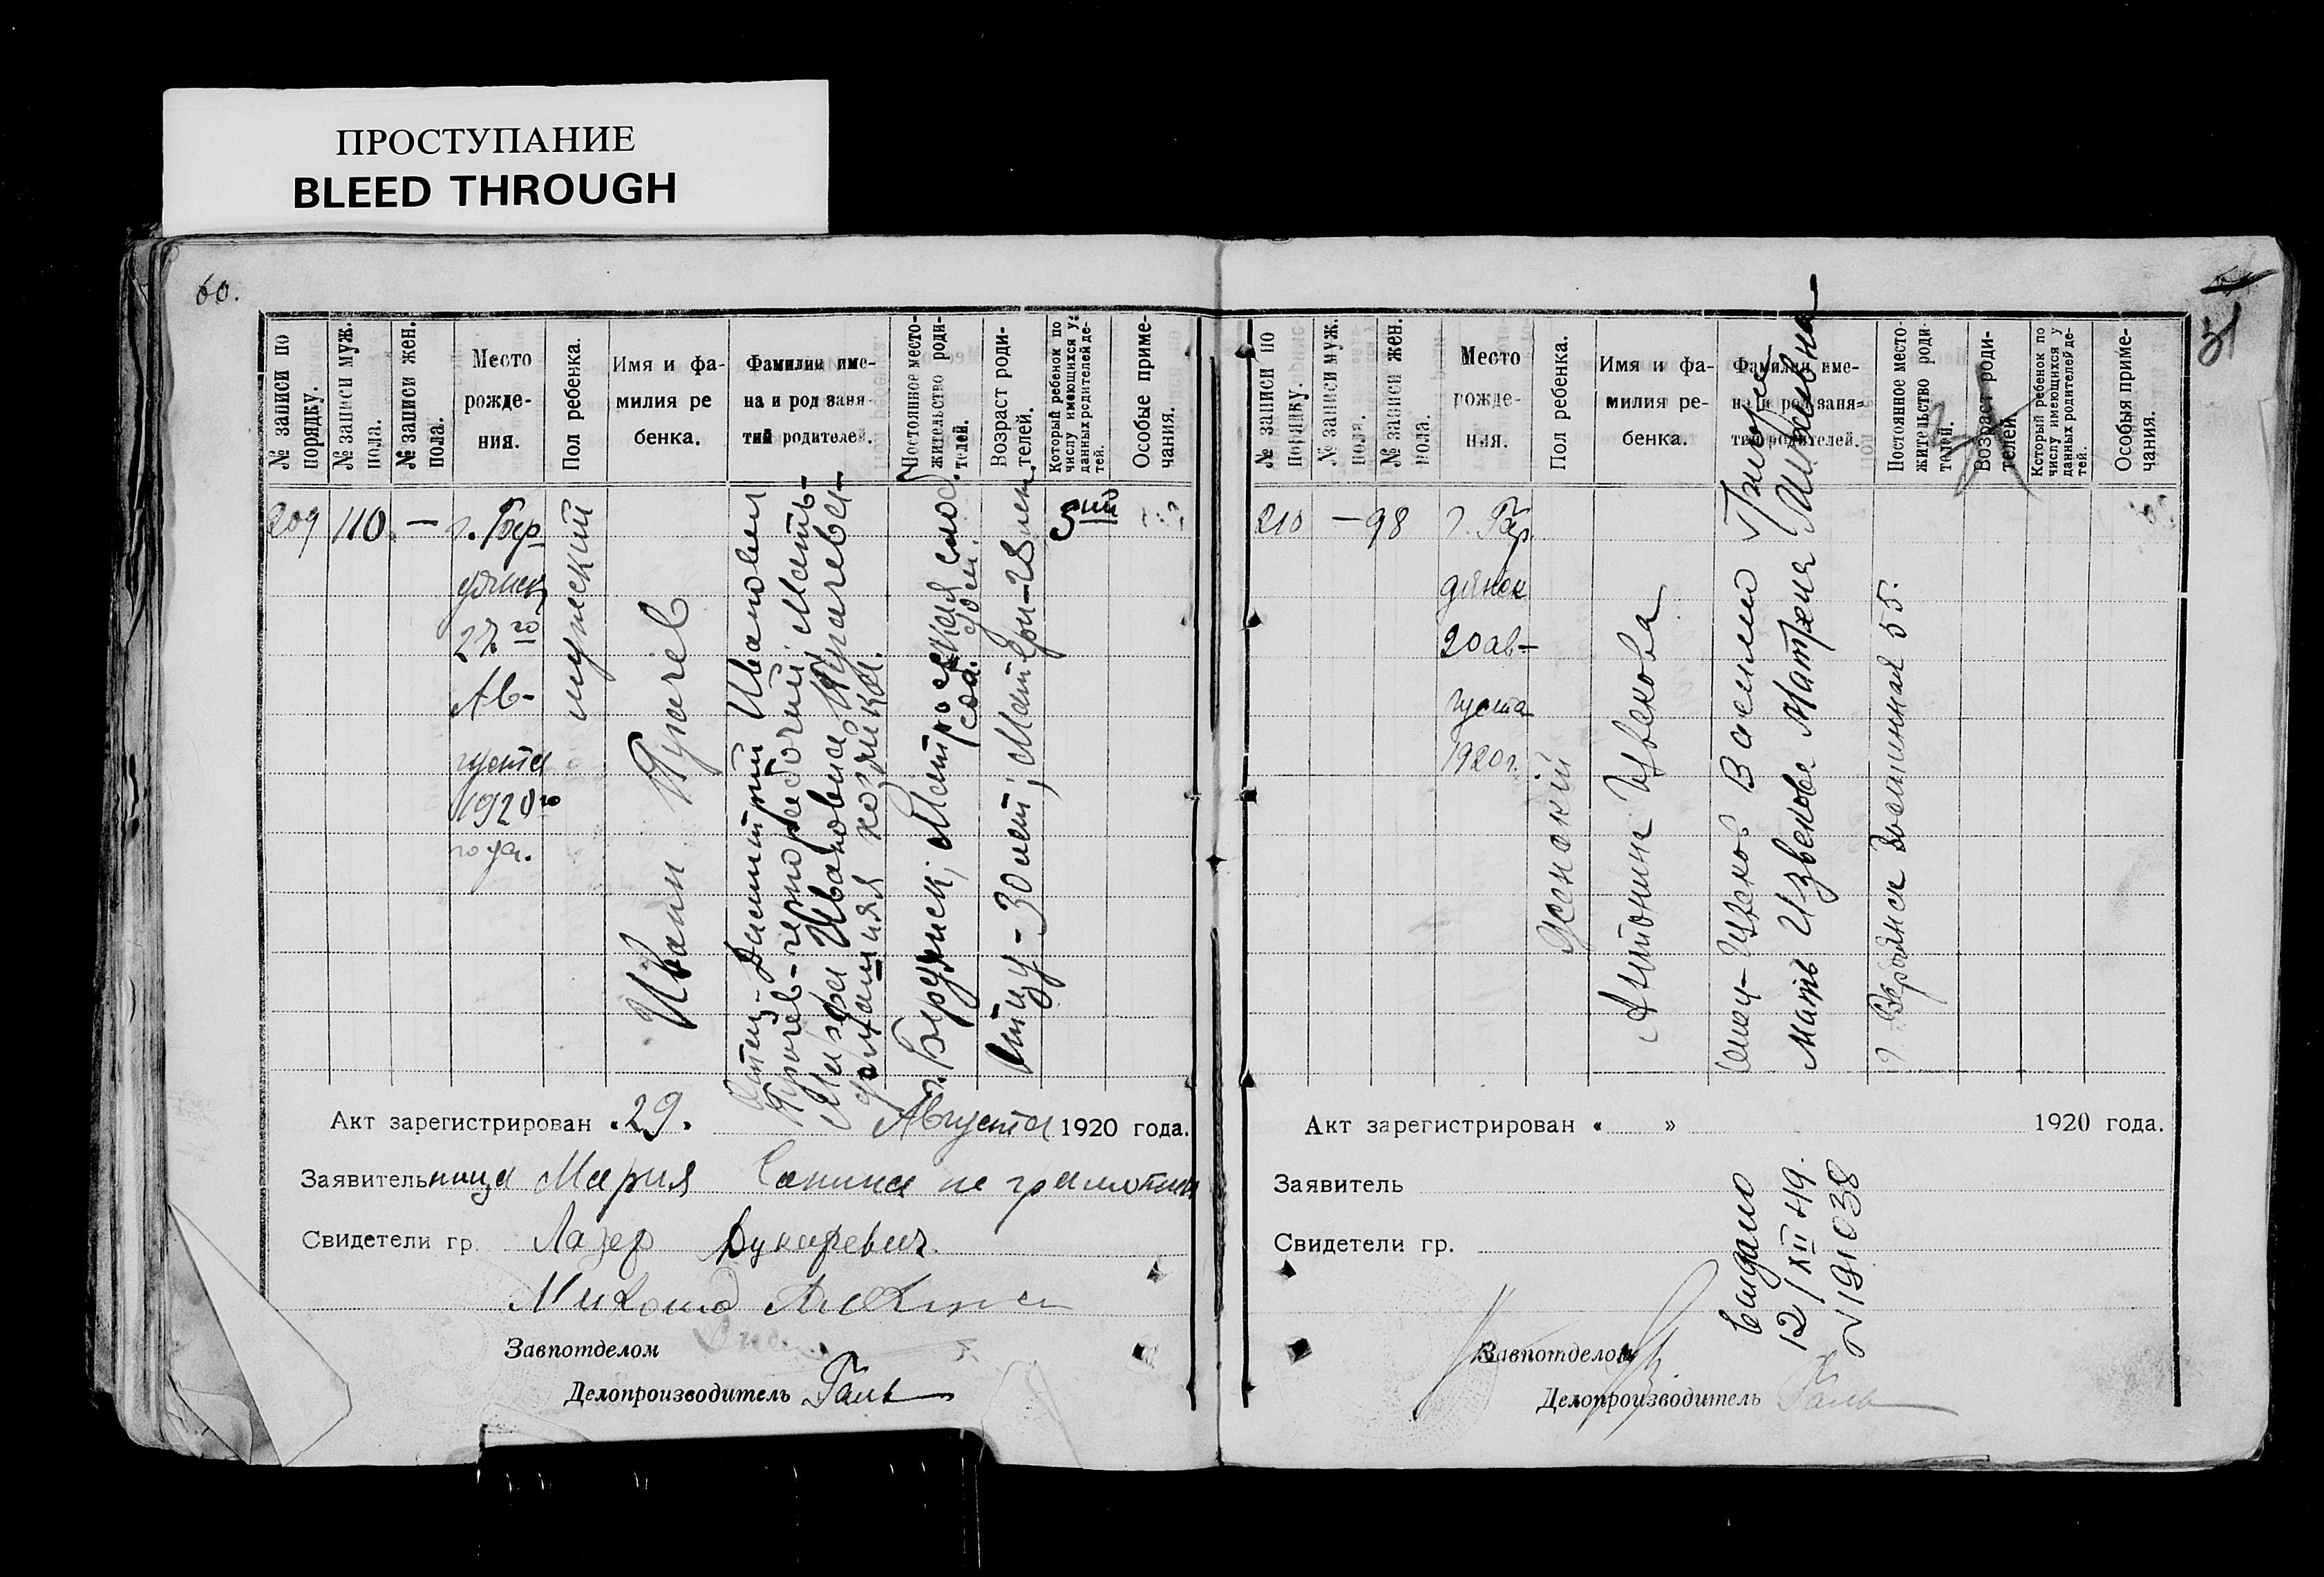 ПРОСТУПАНИЕ
BLEED THROUGH
60.
№ записи по порядку.
№ записи муж. пола.
№ записи жен. пола.
Место рожде-ния.
Пол ребенка.
Имя и фа-милия ре бенка.
Фамилии име-на и род заня-тий родителей.
Постоянное место-жительство роди-телей.
Возраст роди-телей.
Который ребенок по числу имеющихся у данных родителей де-тей.
Особые приме-чания.
209
110
—
г. Бер
дянск
27го
Ав-
густа
1920го
года.
мужеский
Иван Пугачев
Отец- Димитрий Иванович
Пугачев- чернорабочий; Мать-
Марфа Ивановна Пугачева-
домашняя хозяйка.
г. Бердянск, Матросская слоб.
соб. дом.
Отцу- 30 лет; Матери- 28 лет.
5ый
Акт зарегистрирован „29„ Августа 1920 года.
Заявительница Мария Санина не грамотная
Свидетели гр. Лазер
Завпотделом
Делопроизводитель Галь
31
№ записи по порядку.
№ записи муж. пола.
№ записи жен. пола.
Место рожде-ния.
Пол ребенка.
Имя и фа-милия ре-бенка.
Фамилии име-на и род заня-тий родителей.
Постоянное место-жительство роди-телей.
Возраст роди-телей.
Который ребенок по числу имеющихся у данных родителей де-тей.
Особыя приме-чания.
210
—
98
г. Бер
дянск
20 ав-
густа
1920 г.
Женский
Антонина Извекова
Отец- Извеков Василий
Мать Извекова Матрена
г. Бердянск 55.
Акт зарегистрирован « » 1920 года.
Заявитель
Свидетели гр.
Выдано
12/XII 49.
N 191038
Завпотделом
Делопроизводитель Галь